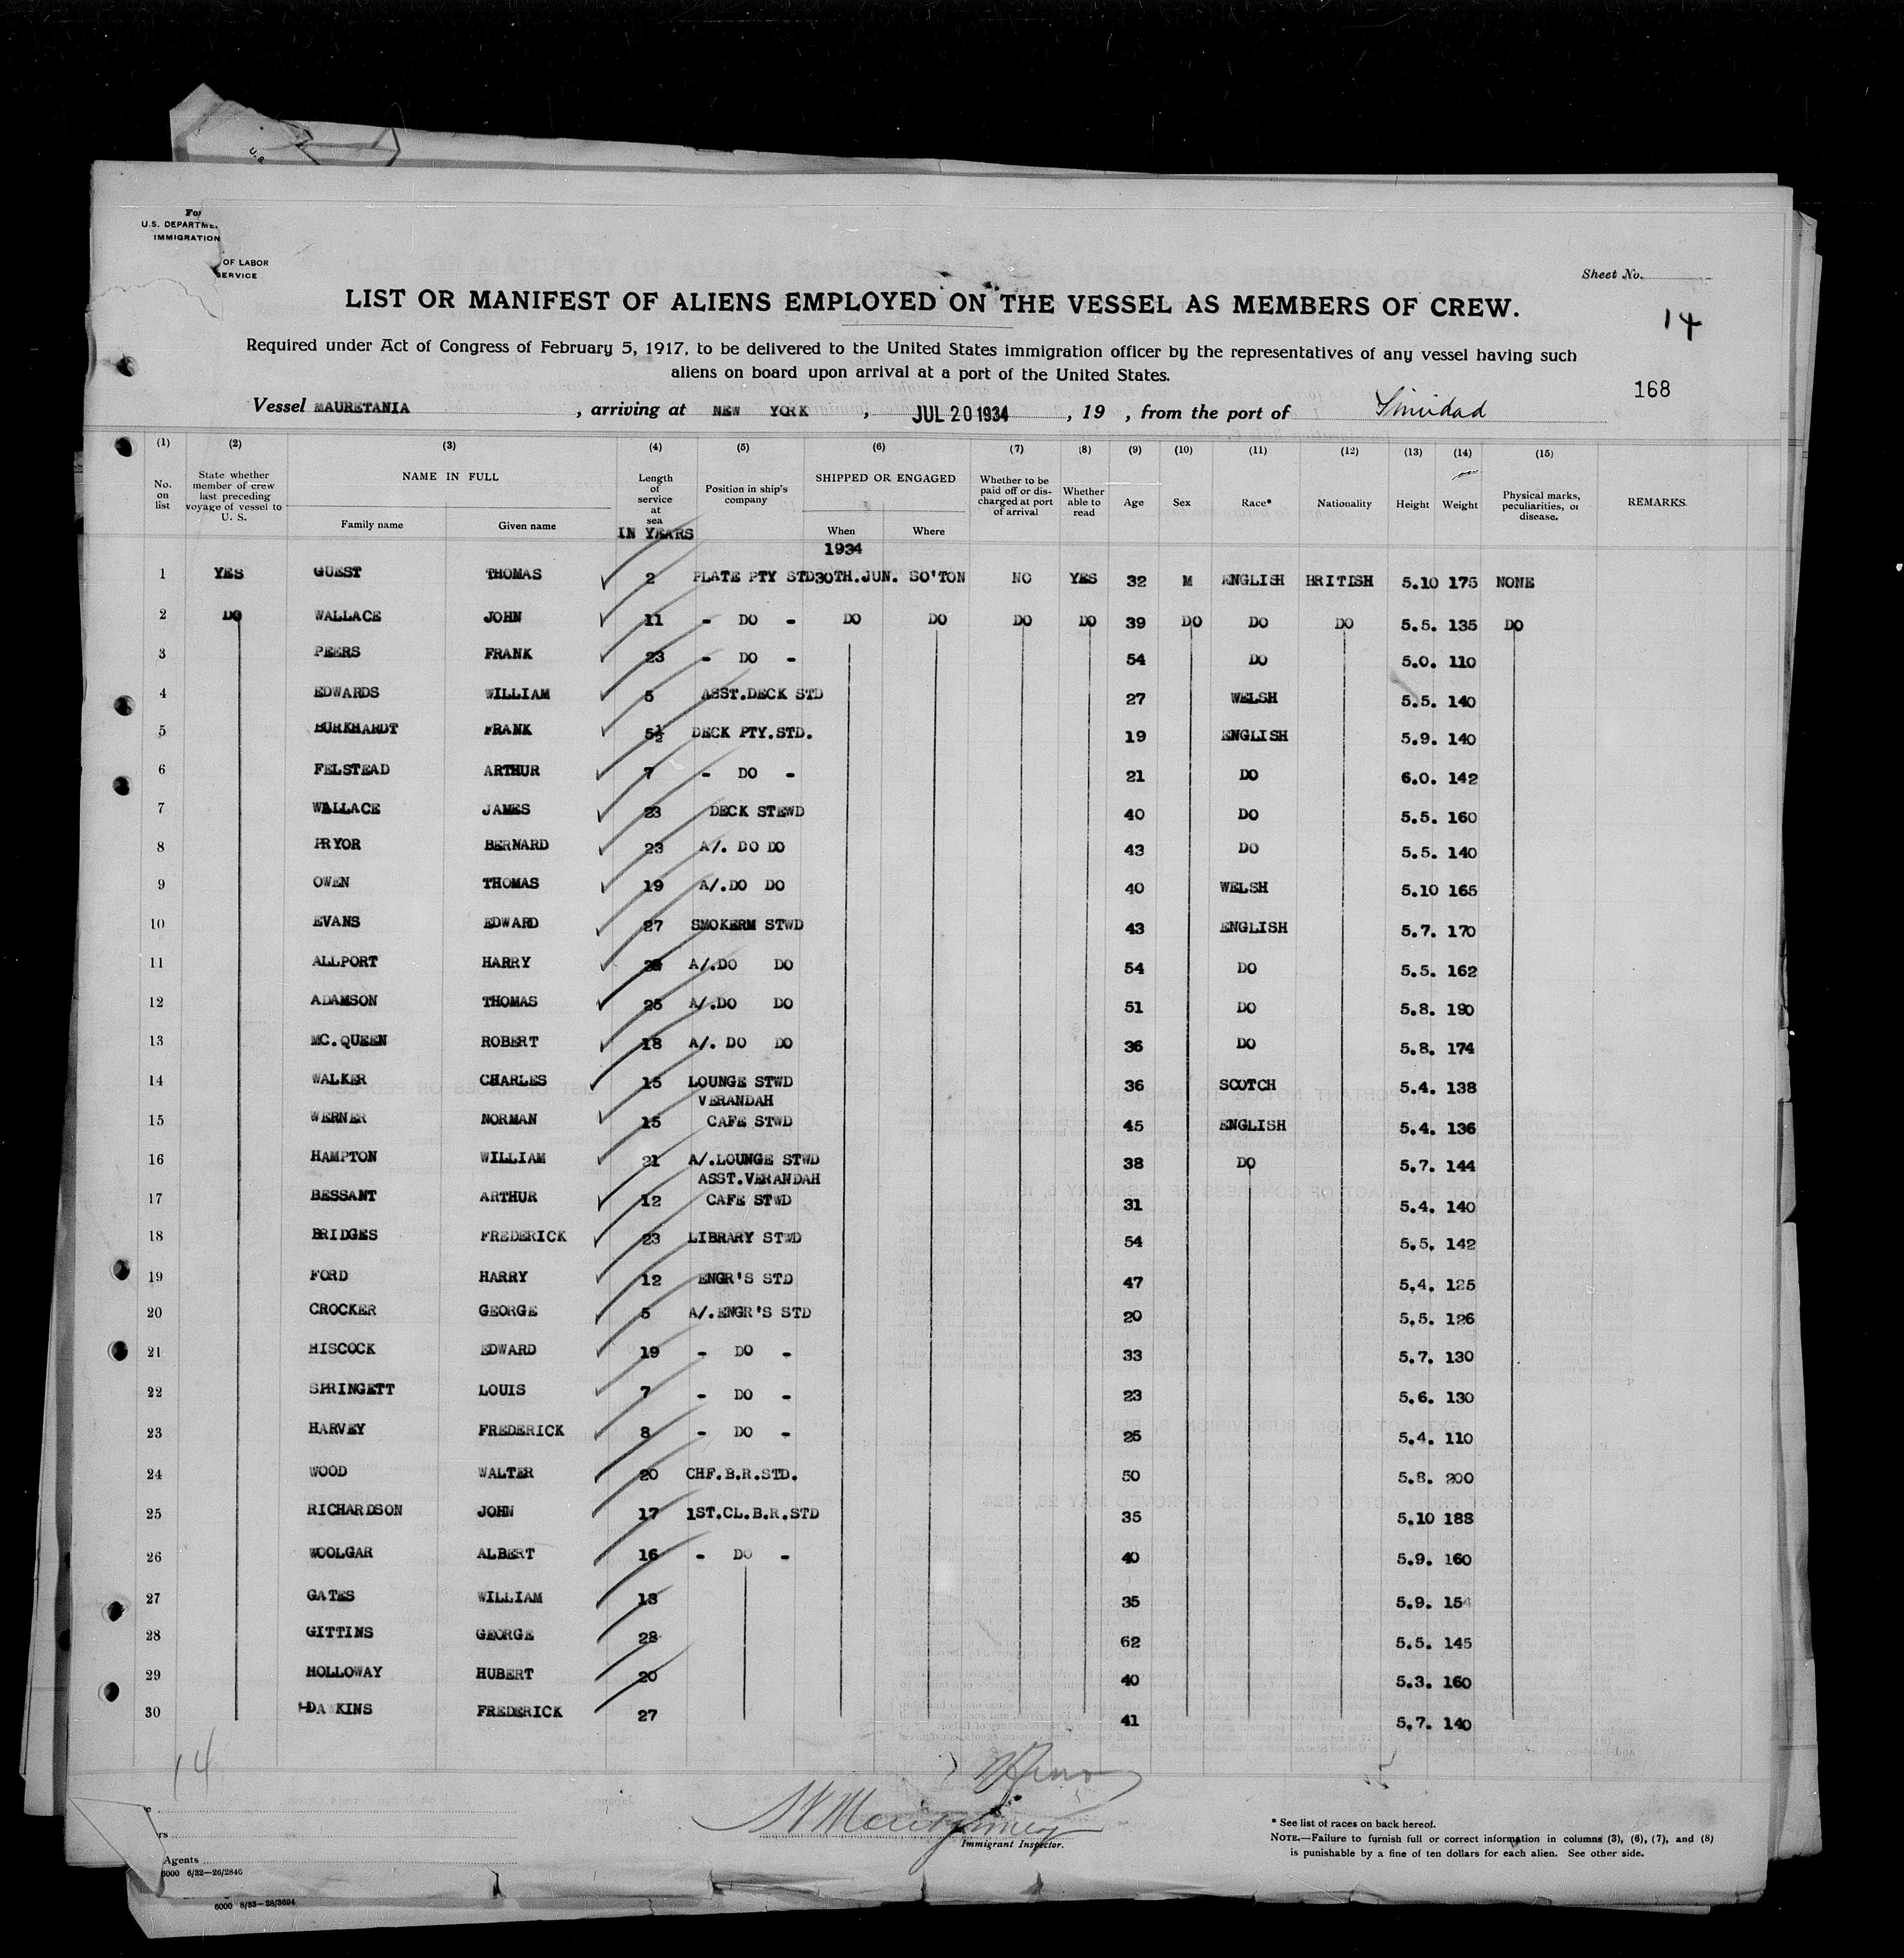 U.S.
For
U.S. DEPARTME
IMMIGRATION
OF LABOR
SERVICE
Sheet No.
LIST OR MANIFEST OF ALIENS EMPLOYED ON THE VESSEL AS MEMBERS OF CREW.
14
Required under Act of Congress of February 5, 1917, to be delivered to the United States immigration officer by the representatives of any vessel having such
aliens on board upon arrival at a port of the United States.
168
Vessel MAURETANIA , arriving at NEW YORK , JUL 20 1934 , 19 , from the port of Trinidad
(1) (2) (3) (4) (5) (6) (7) (8) (9) (10) (11) (12) (13) (14) (15)
No. on list State whether member of crew last preceding voyage of vessel to U. S. NAME IN FULL Family name Given name Length of service at sea IN YEARS Position in ship's company SHIPPED OR ENGAGED When Where Whether to be paid off or discharged at port of arrival Whether able to read Age Sex Race* Nationality Height Weight Physical marks, peculiarities, or disease. REMARKS
1934
1 YES GUEST THOMAS 2 PLATE PTY STD 30TH.JUN. SO'TON NO YES 32 M ENGLISH BRITISH 5.10 175 NONE
2 DO WALLACE JOHN 11 - DO - DO DO DO DO 39 DO DO DO 5.5. 135 DO
3 PEERS FRANK 23 - DO - 54 DO 5.0. 110
4 EDWARDS WILLIAM 5 ASST.DECK STD 27 WELSH 5.5. 140
5 BURKHARDT FRANK 5½ DECK PTY.STD. 19 ENGLISH 5.9. 140
6 FELSTEAD ARTHUR 7 - DO - 21 DO 6.0. 142
7 WALLACE JAMES 23 DECK STEWD 40 DO 5.5. 160
8 PRYOR BERNARD 23 A/. DO DO 43 DO 5.5. 140
9 OWEN THOMAS 19 A/.DO DO 40 WELSH 5.10 165
10 EVANS EDWARD 27 SMOKERM STWD 43 ENGLISH 5.7. 170
11 ALLPORT HARRY A/.DO DO 54 DO 5.5. 162
12 ADAMSON THOMAS 25 A/.DO DO 51 DO 5.8. 190
13 MC.QUEEN ROBERT 18 A/. DO DO 36 DO 5.8. 174
14 WALKER CHARLES 15 LOUNGE STWD 36 SCOTCH 5.4. 138
VERANDAH
15 WERNER NORMAN 15 CAFE STWD 45 ENGLISH 5.4. 136
16 HAMPTON WILLIAM 21 A/.LOUNGE STWD 38 DO 5.7. 144
ASST.VERANDAH
17 BESSANT ARTHUR 12 CAFE STWD 31 5.4. 140
18 BRIDGES FREDERICK 23 LIBRARY STWD 54 5.5. 142
19 FORD HARRY 12 ENGR'S STD 47 5.4. 125
20 CROCKER GEORGE 5 A/.ENGR'S STD 20 5.5. 126
21 HISCOCK EDWARD 19 - DO - 33 5.7. 130
22 SPRINGETT LOUIS 7 - DO - 23 5.6. 130
23 HARVEY FREDERICK 8 - DO - 25 5.4. 110
24 WOOD WALTER 20 CHF.B.R.STD. 50 5.8. 200
25 RICHARDSON JOHN 17 1ST.CL.B.R.STD 35 5.10 188
26 WOOLGAR ALBERT 16 - DO - 40 5.9. 160
27 GATES WILLIAM 18 35 5.9. 154
28 GITTINS GEORGE 28 62 5.5. 145
29 HOLLOWAY HUBERT 20 40 5.3. 160
30 DA KINS FREDERICK 27 41 5.7. 140
14
Immigrant Inspector.
rs
Agents
6000 6/32—26/2846
* See list of races on back hereof.
NOTE.—Failure to furnish full or correct information in columns (3), (6), (7), and (8)
is punishable by a fine of ten dollars for each alien. See other side.
6000 8/33—28/3694